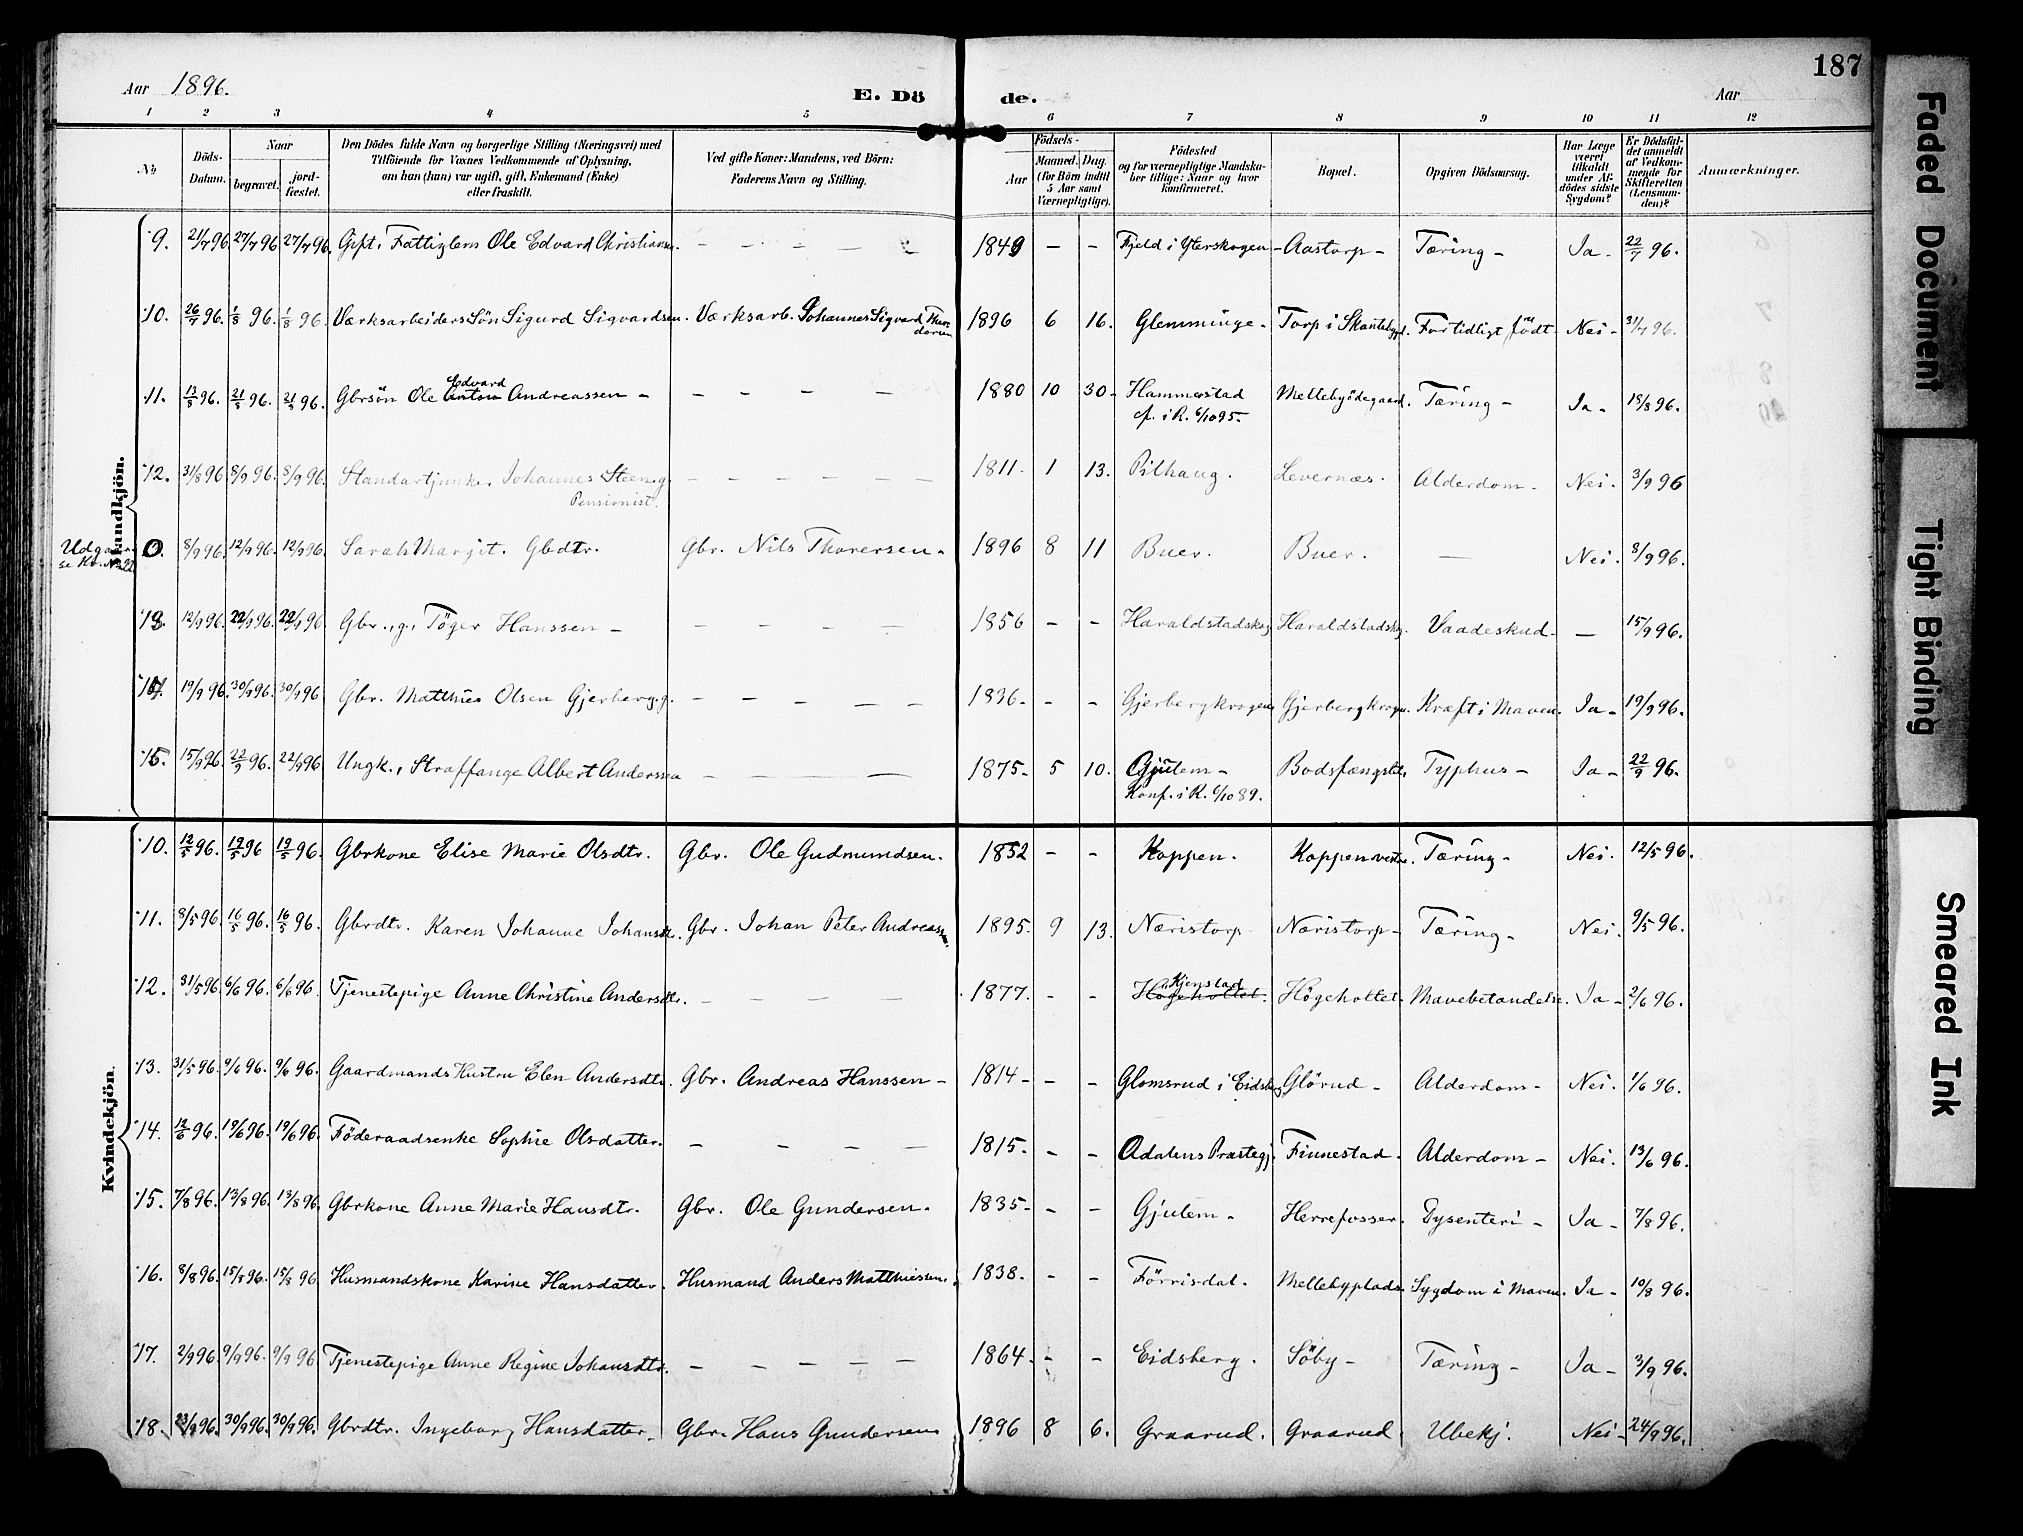 Aar 1896.
E. Döde.
187
Aar
1 2 3 4 5 6 7 8 9 10 11 12
No
Döds-Datum.
Naar
begravet.
jord-fæstet.
Den Dödes fulde Navn og borgerlige Stilling (Næringsvei) med Tilföiende for Voxnes Vedkommende af Oplysning, om han (hun) var ugift, gift, Enkemand (Enke) eller fraskilt.
Ved gifte Koner: Mandens, ved Börn: Faderens Navn og Stilling.
Födsels-
Aar
Maaned. Dag.
(for Börn indtil 5 Aar samt Værnepligtige).
Födested og for værnepligtige Mandskaber tillige: Naar og hvor konfirmeret.
Bopæl.
Opgiven Dödsaarsag.
Har Læge været tilkaldt under Afdödes sidste Sygdom?
Er Dödsfaldet anmeldt af Vedkommende for Skifteretten (Lensmanden)?
Anmærkninger.
Mandkjön.
9. 21/7 96. 27/7 96 27/7 96. Gift, Fattiglem Ole Edvard Christiansen. — — — — — 1849 — — Fjeld i Yterskogen — Aastorp — Tæring — Ja — 22/7 96.
10. 26/7 96. 1/8 96. 1/8 96. Værksarbeiders Sön Sigurd Sigvardsen. Værksarb. Johannes Sigvard 1896 6 16. Glemminge — Torp i Skantebygd. Fortidligt födt. Nei — 31/7 96.
11. 13/8 96. 21/8 96. 21/8 96. Gbrsön Ole Anton Edvard Andreassen — — — — — 1880 10 30. Hammerstad Mellebyödegaard. Tæring — Ja — 15/8 96.
cf. i R. 6/10 95.
12. 31/8 96 8/9 96. 8/9 96. Standartjunker, Johannes Steen, g. — — — — — 1811. 1 13. Pilhaug. Levernæs. Alderdom — Nei. 3/9 96
Pensionist.
Udgaar se Kv. No 22
8/9 96. 12/9 96. 12/9 96. Sarah Marjit. Gbdtr. Gbr. Nils Thorersen — 1896 8 11 Buer. Buer. — Nei. 8/9 96.
13. 12/9 96. 22/9 96. 22/9 96 Gbr., g., Töger Hanssen — — — — — 1856 — — Haraldstadskog Haraldstadskog. Vaadeskud — — 15/9 96.
14. 19/9 96. 30/9 96. 30/9 96 Gbr. Matthies Olsen Gjerberg, g. — — — — — 1836 — — Gjerbergkrogen Gjerbergkrogen. Kræft i Maven. Ja — 19/9 96.
15. 15/9 96. 22/9 96. 22/9 96 Ungk., Straffange Albert Anderssen — — — — 1875 — 5 10. Gjulem — Bodsfængslet. Typhus — Ja — 22/9 96.
Konf. i R. 6/10 89.
Kvindekjön.
10. 12/5 96. 19/5 96 19/5 96. Gbrkone Elise Marie Olsdtr. Gbr. Ole Gudmundsen. 1832 — — Koppen. Koppen vestre. Tæring — Nei. 12/5 96.
11. 8/5 96. 16/5 96. 16/5 96. Gbrdtr. Karen Johanne Johansdtr. Gbr. Johan Peter Andreassen. 1895. 9 13. Næristorp — Næristorp — Tæring — Nei. 9/5 96.
12. 31/5 96. 6/6 96. 6/6 96. Tjenestepige Anne Christine Andersdtr. — — — — 1877. — — Högeholtet. Kjenstad Högeholtet. Mavebetændelse. Ja — 2/6 96.
13. 31/5 96. 9/6 96. 9/6 96. Gaardmands Hustru Elen Andersdtr. Gbr. Andreas Hanssen — 1814 — — — Glomsrud i Eidsberg Glörud — Alderdom — Nei. 1/6 96.
14. 12/6 96. 19/6 96. 19/6 96. Föderaadsenke Sophie Olsdatter. — — — — 1815. — — Adalens Præstegj. Finnestad. Alderdom — Nei. 13/6 96.
15. 7/8 96. 13/8 96. 13/8 96. Gbrkone Anne Marie Hansdtr. Gbr. Ole Gundersen. 1835 — — — Gjulem — Herrefosser. Dysenteri — Ja — 7/8 96.
16. 8/8 96. 15/8 96. 15/8 96 Husmandskone Karine Hansdatter. Husmand Anders Matthiessen. 1838. — — Förrisdal. Mellebyplads. Sygdom i Maven. Ja — 10/8 96.
17. 2/9 96. 9/9 96. 9/9 96 Tjenestepige Anne Regine Johansdtr. — — — — — 1864. — — Eidsberg. Söby — Tæring — Ja — 3/9 96.
18. 23/9 96. 30/9 96. 30/9 96. Gbrdtr. Ingeborg Hansdatter. Gbr. Hans Gundersen 1896 8 6. Graarud. Graarud Ubekj. Nei — 24/9 96.
Faded Document
Tight Binding
Smeared Ink